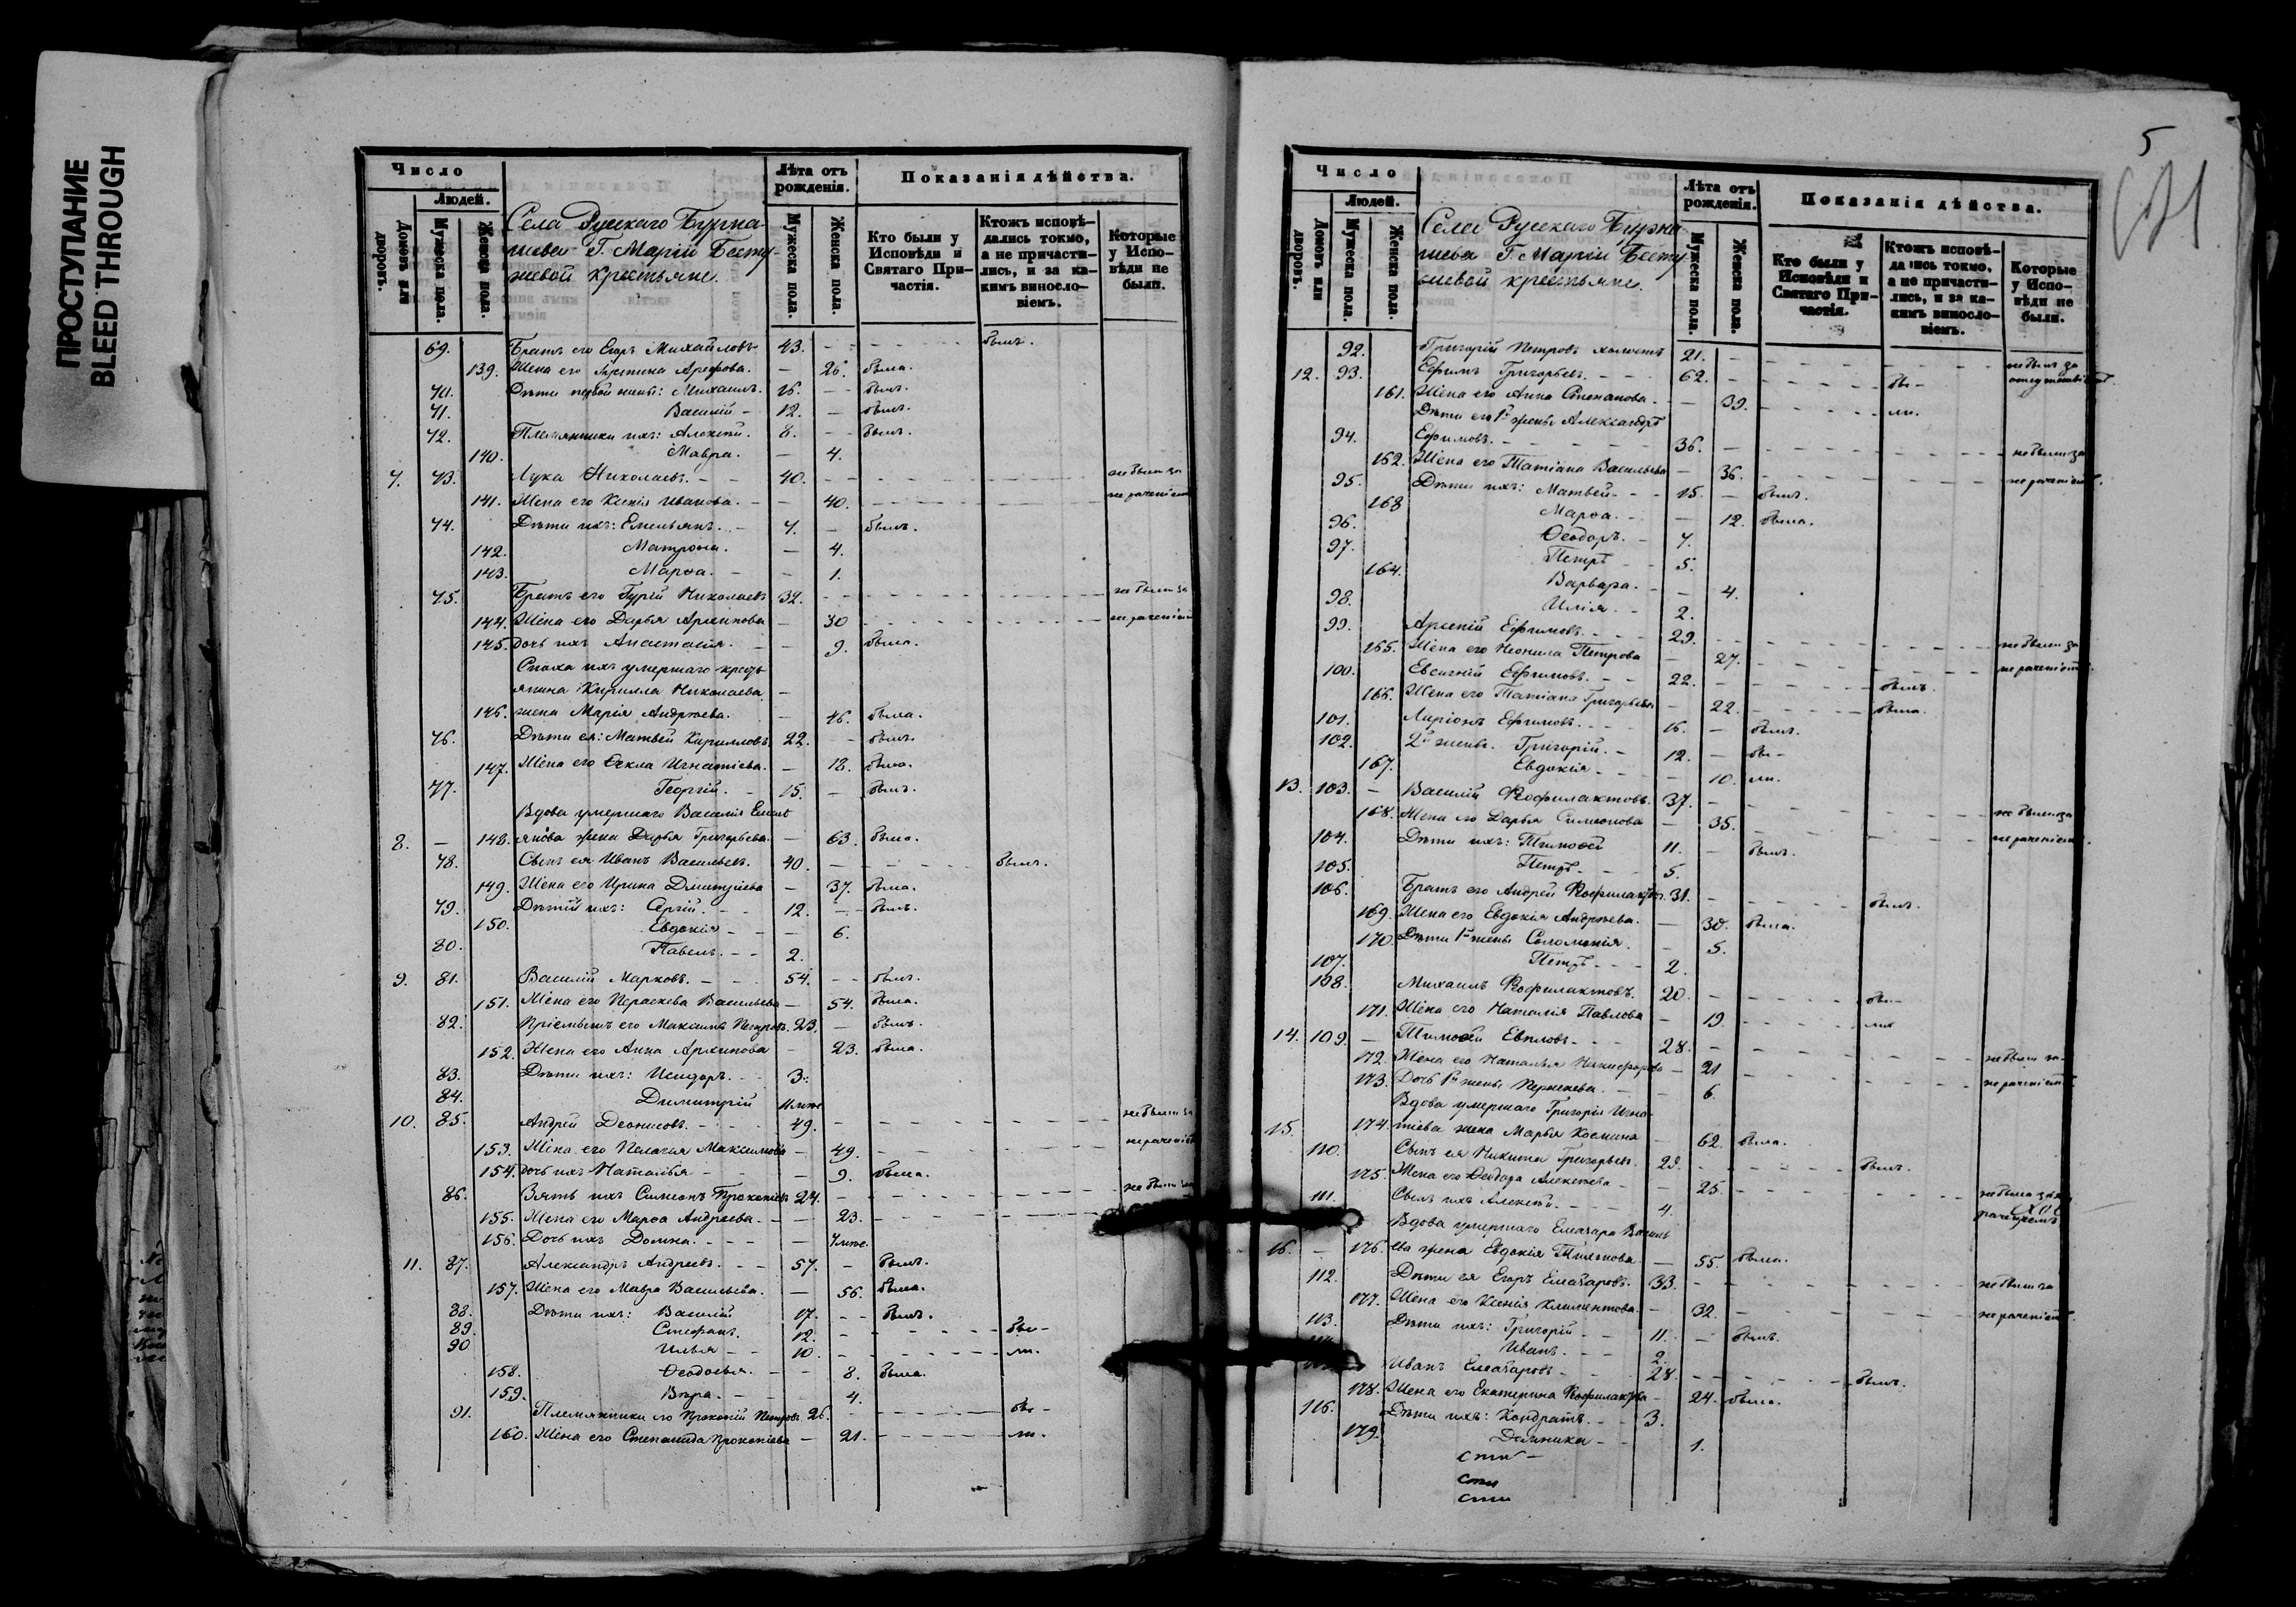 ПРОСТУПАНИЕ
BLEED THROUGH
Число
Людей.
Домовъ или дворовъ.
Мужеска пола.
Женска пола.
Села Русскаго Бурна-
шева Г. Маріи Бесту-
жевой крестьяне.
Лѣта отъ рожденія.
Мужеска пола.
Женска пола.
Показанія дѣйства.
Кто были у Исповѣди и Святаго При-частія.
Ктожъ исповѣ-дались токмо, а не причасти-лись, и за ка-кимъ винословіемъ.
Которые у Испо-вѣди не были.
69. Братъ его Егоръ Михайловъ 43. былъ.
139. Жена его Арефова. — 26. была.
70. Дѣти первой жены: Михаилъ. 16. — былъ.
71. Василій — 12. — былъ.
72. Племянники ихъ: Алексѣй. 8. — былъ.
140. Мавра. — 4.
7. 73. Лука Николаевъ. — 40. не были за
141. Жена его Ксенія Иванова. — 40. нераченіемъ
74. Дѣти ихъ: Емельянъ. — 7. — былъ.
142. Матрона. — 4.
143. Марѳа. — 1.
75. Братъ его Гурій Николаевъ 32. не были за
144. Жена его Дарья Архипова — 30 нераченіемъ
145. Дочь ихъ Анастасія. — 9. была.
Сноха ихъ умершаго кресть-
янина Кирилла Николаева —
146. жена Марія Андреева. — 46. была.
76. Дѣти ея: Матвей Кирилловъ 22. — былъ.
147. Жена его Ѳекла Игнатіева. — 18. была.
77. Георгій. — 15. — былъ.
Вдова умершаго Василія Емель
8. — 148. янова жена Дарья Григорьева. — 63. была.
78. Сынъ ея Иванъ Васильевъ. 40. былъ.
149. Жена его Ирина Дмитріева — 37. была.
79. Дѣти ихъ: Сергій. — 12. — былъ.
150. Евдокія — 6.
80. Павелъ. — 2.
9. 81. Василій Марковъ. — 54. — былъ.
151. Жена его Параскева Васильева — 54. была.
82. Пріемышъ его Максимъ Петровъ. 23. — былъ.
152. Жена его Анна Архипова — 23. была.
83. Дѣти ихъ: Исидоръ. 3.
84. Димитрій
10. 85. Андрей Деонисовъ. 49. не были за
153. Жена его Пелагія Максимова — 49. нераченіемъ
154. Дочь ихъ Наталья — 9. была.
86. Зять ихъ Симеонъ Прокопіевъ 24. не были за
155. Жена его Марѳа Андреева. — 23.
156. Дочь ихъ Домна. —
11. 87. Александръ Андреевъ. — 57. — былъ.
157. Жена его Мавра Васильева. — 56. была.
88. Дѣти ихъ: Василій 17. — былъ.
89. Стефанъ. 12. — бы-
90 Илья — 10. — ли.
158. Ѳеодосья. — 8. была.
159. Вѣра. — 4.
91. Племянники его Прокопій Петровъ 26. — бы-
160. Жена его Степанида Прокопіева — 21. ли.
5
Число
Людей.
Домовъ или дворовъ.
Мужеска пола.
Женска пола.
Села Русскаго Бурна-
шева Г. Маріи Бесту-
жевой крестьяне.
Лѣта отъ рожденія.
Мужеска пола.
Женска пола.
Показанія дѣйства.
Кто были у Исповѣди и Святаго При-частія.
Ктожъ исповѣ-дались токмо, а не причасти-лись, и за ка-кимъ винословіемъ.
Которые у Испо-вѣди не были.
92. Григорій Петровъ холостъ 21. — не былъ за
12. 93. Ефимъ Григорьевъ. 62. — бы-
161. Жена его Анна Степанова. — 39. ли.
Дѣти его 1й жены Александръ
94. Ефимовъ. 36. — не были за
162. Жена его Татіана Васильева — 36. нераченіемъ.
95. Дѣти ихъ: Матвей — 15. — былъ.
163 Марѳа. — 12. была.
96. Ѳеодоръ. — 7.
97. Петръ — 5.
164. Варвара. — 4.
98. Илія. — 2.
99. Арсеній Ефимовъ. 29. не были за
165. Жена его Неонила Петрова — 27. нераченіемъ.
100. Евсигній Ефимовъ. 22. — былъ.
166. Жена его Татіана Григорьева — 22. была.
101. Ларіонъ Ефимовъ. 16. — былъ.
102. 2й жены. Григорій. — 12. — бы-
167. Евдокія — 10. ли.
13. 103. — Василій Ѳеофилактовъ. 37. — не были за
168. Жена его Дарья Симеонова — 35. нераченіемъ.
104. Дѣти ихъ: Тимоѳей 11. — былъ.
105. Петръ — 5.
106. Братъ его Андрей Ѳеофилактов. 31. — былъ.
169. Жена его Евдокія Андреева. — 30. была.
170. Дѣти 1й жены Соломонія. — 5.
107. Петръ — 2.
108. Михаилъ Ѳеофилактовъ. 20. — бы-
171. Жена его Наталія Павлова — 19. ли
14. 109. — Тимоѳей Евпловъ. 28. — не были за
172. Жена его Наталья Никифорова — 21 нераченіемъ
173. Дочь 1й жены Параскева. — 6.
Вдова умершаго Григорія Игна-
15. 174. тіева жена Марья Космина — 62. была.
110. Сынъ ея Никита Григорьевъ. 29. былъ.
175. Жена его Ѳеодора Алексѣева — 25. не была за не
111. Сынъ ихъ Алексѣй. — 4. раченіемъ
Вдова умершаго Елеазара Василь
16. — 176. ева жена Евдокія — 55. была.
112. Дѣти ея Егоръ Елеазаровъ. 33. не были за
177. Жена его Ксенія Климентова. — 32. нераченіемъ.
113. Дѣти ихъ: Григорій — 11. — былъ.
Иванъ. — 2.
Иванъ Елеазаровъ. 28. былъ.
178. Жена его Екатерина Ѳеофилактова — 24. была.
116. Дѣти ихъ: Кондратъ. — 3.
179. Домника — 1.